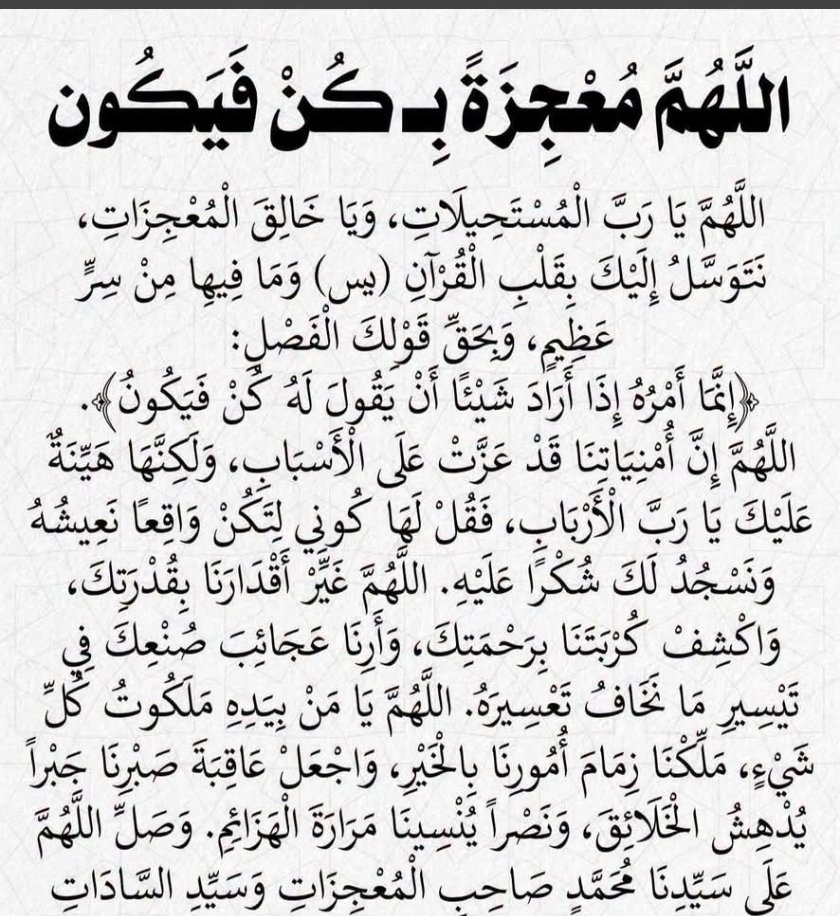 اللَّهُمَّ مُعْجِزَةً بِـ كُنْ فَيَكُون
اللَّهُمَّ يَا رَبَّ الْمُسْتَحِيلَاتِ، وَيَا خَالِقَ الْمُعْجِزَاتِ،
نَتَوَسَّلُ إِلَيْكَ بِقَلْبِ الْقُرْآنِ (يس) وَمَا فِيهَا مِنْ سِرٍّ
عَظِيمٍ، وَبِحَقِّ قَوْلِكَ الْفَصْلِ:
﴿إِنَّمَا أَمْرُهُ إِذَا أَرَادَ شَيْئًا أَنْ يَقُولَ لَهُ كُنْ فَيَكُونُ﴾.
اللَّهُمَّ إِنَّ أُمْنِيَاتِنَا قَدْ عَزَّتْ عَلَى الْأَسْبَابِ، وَلَكِنَّهَا هَيِّنَةٌ
عَلَيْكَ يَا رَبَّ الْأَرْبَابِ، فَقُلْ لَهَا كُونِي لِتَكُنْ وَاقِعًا نَعِيشُهُ
وَنَسْجُدُ لَكَ شُكْرًا عَلَيْهِ. اللَّهُمَّ غَيِّرْ أَقْدَارَنَا بِقُدْرَتِكَ،
وَاكْشِفْ كُرْبَتَنَا بِرَحْمَتِكَ، وَأَرِنَا عَجَائِبَ صُنْعِكَ فِي
تَيْسِيرِ مَا نَخَافُ تَعْسِيرَهُ. اللَّهُمَّ يَا مَنْ بِيَدِهِ مَلَكُوتُ كُلِّ
شَيْءٍ، مَلِّكْنَا زِمَامَ أُمُورِنَا بِالْخَيْرِ، وَاجْعَلْ عَاقِبَةَ صَبْرِنَا جَبْراً
يُدْهِشُ الْخَلَائِقَ، وَنَصْراً يُنْسِينَا مَرَارَةَ الْهَزَائِمِ. وَصَلِّ اللَّهُمَّ
عَلَى سَيِّدِنَا مُحَمَّدٍ صَاحِبِ الْمُعْجِزَاتِ وَسَيِّدِ السَّادَاتِ